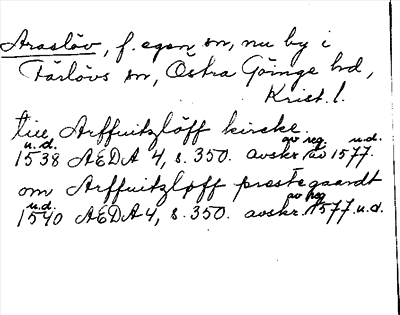 Araslöv, f. egen sn, nu by i
Färlövs sn, Östra Göinge hd,
Krist. l.
till Arffuitzlöff kircke.
u.d. av reg. u.d.
1538 AEDA 4, s. 350. avskr. av 1577.
om Arffuitzløff prestegaardt
u.d. av reg
1540 AEDA 4, s. 350. avskr. 1577. u.d.